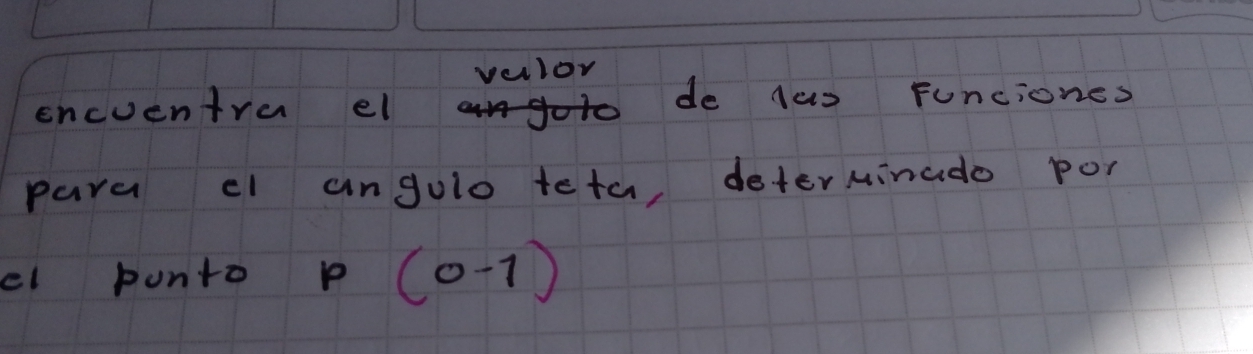 valor
encuentra el angolo de las Funciones
para el angulo teta, determinado por
el punto P (0-1)